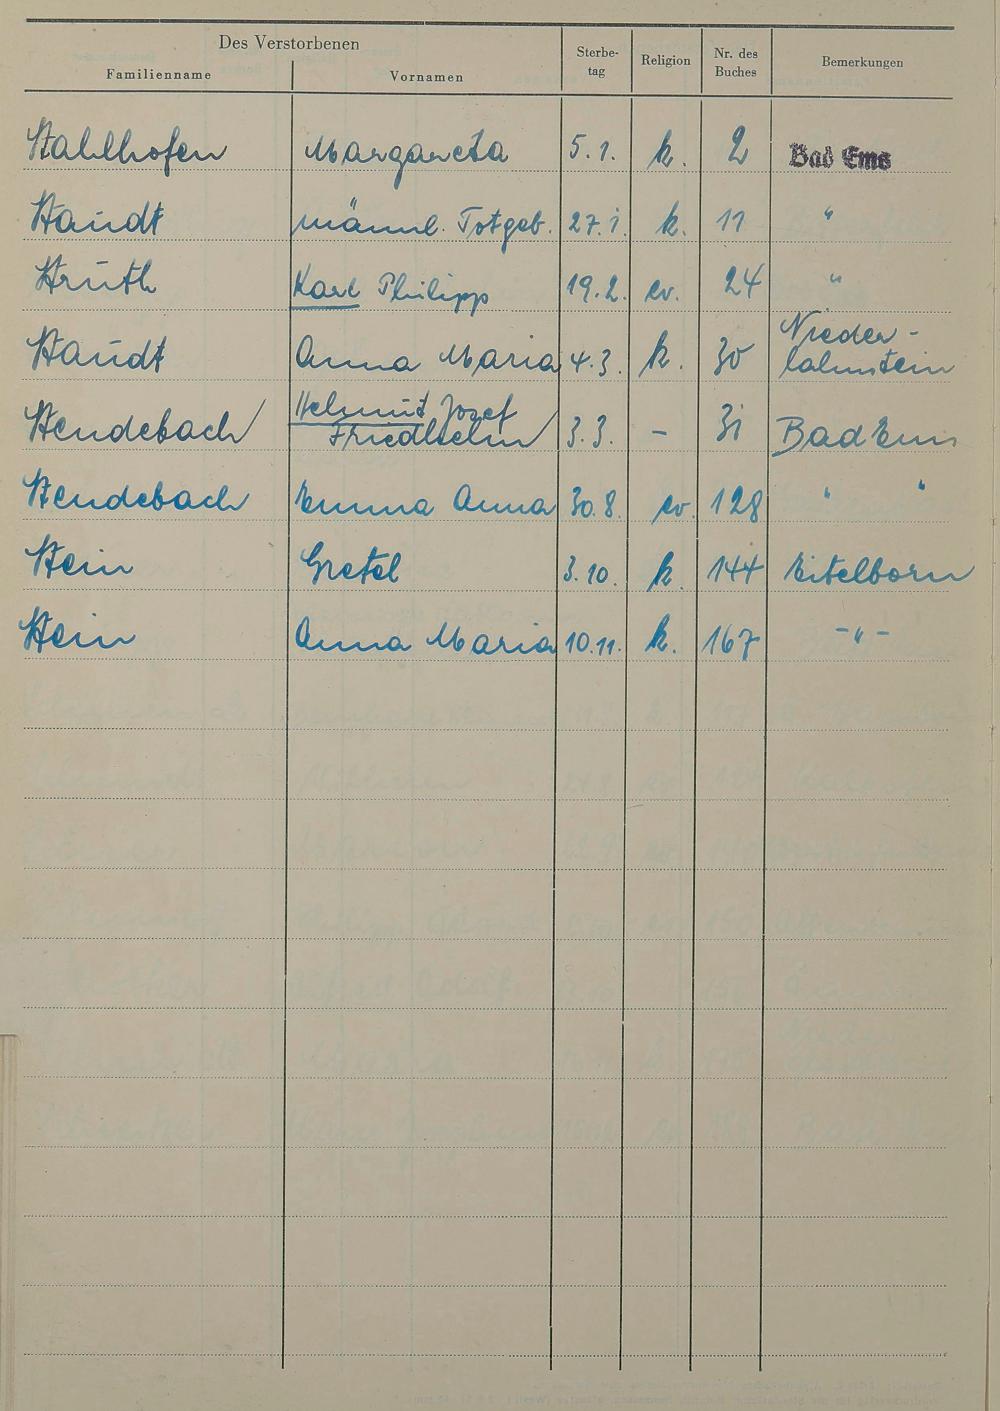 Des Verstorbenen
Familienname Vornamen Sterbe-
tag Religion Nr. des
Buches Bemerkungen
Stahlhofen Margareta 5.1. k. 2 Bad Ems
Staudt männl. Totgeb. 27.1. k. 11 "
Struth Karl Philipp 19.2. ev. 24 "
Staudt Anna Maria 4.3. k. 30 Nieder-
lahnstein
Stendebach Helmut Josef
Friedhelm 3.3. - 31 Bad Ems
Stendebach Emma Anna 30.8. ev. 128 " "
Stein Gretel 3.10. k. 144 Eitelborn
Stein Anna Maria 10.11. k. 167 -"-